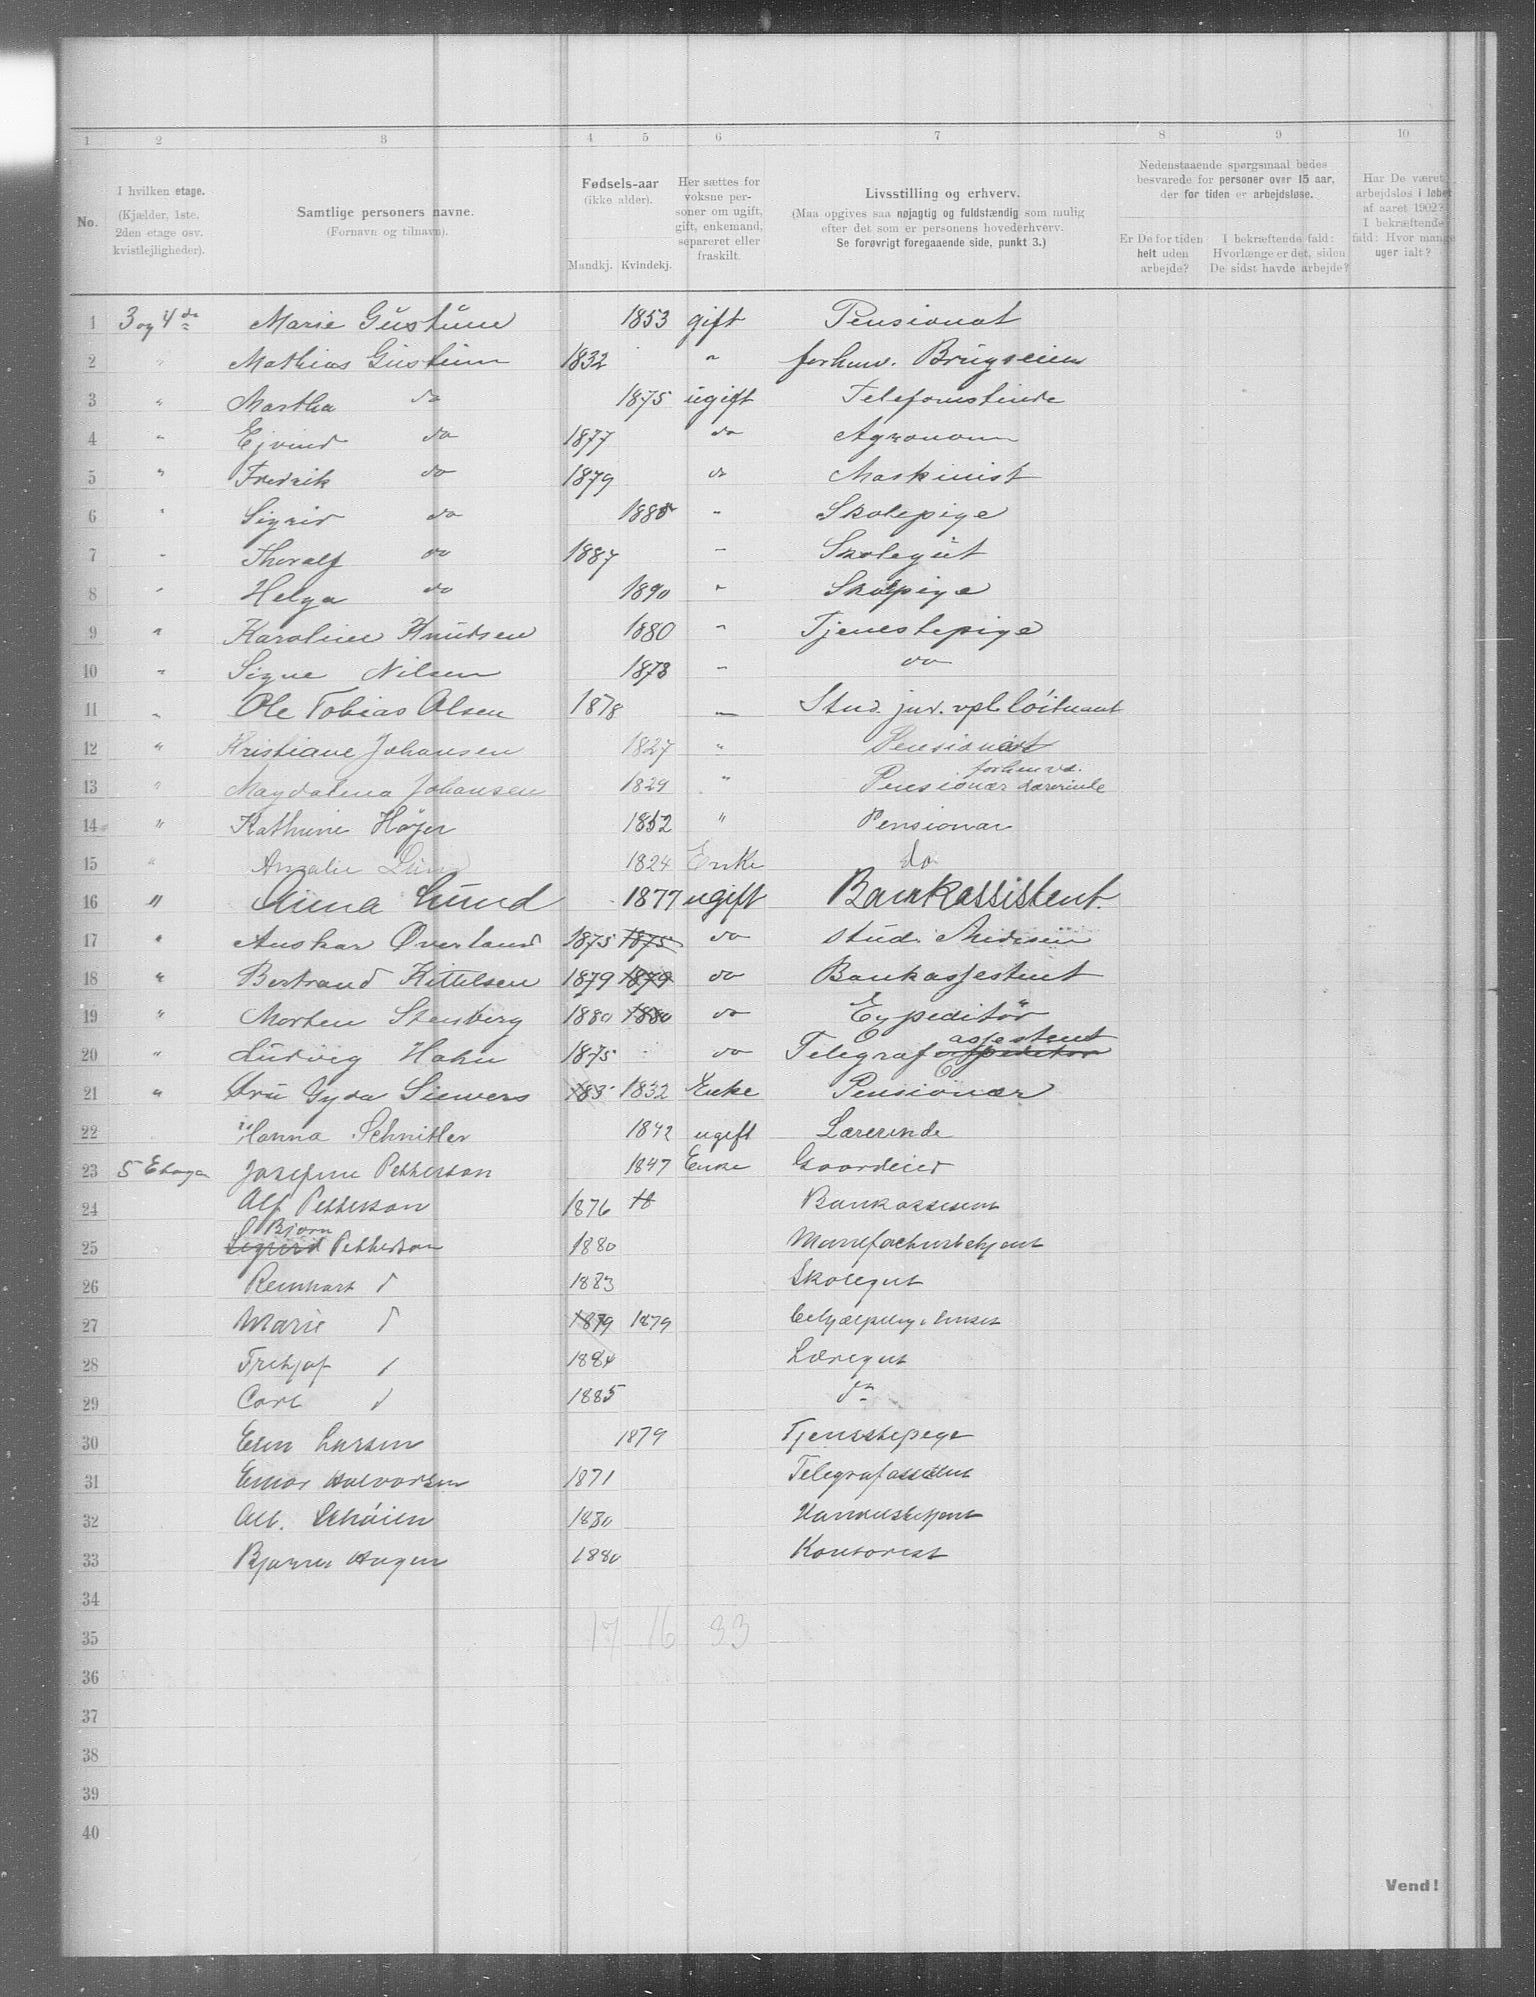 1 2 3 4 5 6 7 8 9 10
No.
I hvilken etage.
(Kjælder, 1ste,
2den etage osv.
kvistlejligheder).
Samtlige personers navne.
(Fornavn og tilnavn).
Fødsels-aar
(ikke alder).
Mandkj. Kvindekj.
Her sættes for
voksne per-
soner om ugift,
gift, enkemand,
separeret eller
fraskilt.
Livsstilling og erhverv.
(Maa opgives saa nøjagtig og fuldstændig som mulig
efter det som er personens hovederhverv.
Se forøvrigt foregaaende side, punkt 3.)
Nedenstaaende spørgsmaal bedes
besvarede for personer over 15 aar,
der for tiden er arbejdsløse.
Er De for tiden
helt uden
arbejde?
I bekræftende fald:
Hvorlænge er det, siden
De sidst havde arbejde?
Har De været
arbejdsløs i løbet
af aaret 1902?
I bekræftende
fald: Hvor mange
uger ialt?
1 3 og 4de Marie 1853 gift Pensionat
2 " Mathias 1832 "
3 " Martha do 1875 ugift Telefonistinde
4 " Ejvind do 1877 do Agronom
5 " Fredrik do 1879 do Maskinist
6 " Sigrid do " Skolepige
7 " Thoralf do 1887 " Skolegut
8 " Helga do 1890 " Skolpige
9 " Karoline Knudsen 1880 " Tjenestepige
10 " Signe Nilsen 1878 " do
11 " Ole Tobias Olsen 1878 " Stud. jur. vpl. løitnant
12 " Kristiane Johansen 1827 "
13 " Magdalena Johansen 1829 " Pensionær forhenv. Lærerinde
14 " Kathrine Høyer 1852 " Pensionær
15 " Lund 1824 Enke do
16 " Anna Lund 1877 ugift Bankassistent.
17 " Anskar Øverland 1875 1875 do stud. Medisin
18 " Bertrand Kittelsen 1879 1879 do Bankassestent
19 " Morten Stensberg 1880 1880 do Expeditör
20 " Ludvig Hahn 1875 do Telegrafexpeditør assestent
21 " Fru Gyda Siewers 183 1832 Enke Pensionær
22 Hanna Schnitler 1842 ugift Lærerinde
23 5 Etage Josefine Petterson 1847 Enke Gaardeier
24 Alf Petterson 1876 18 Bankassistent
25 Sigurd Bjørn Petterson 1880 Manufacturbetjent
26 Reinhart d 1883 Skolegut
27 Marie d 1879 1879 behjælpelig i huset
28 Frithjof d 1884 Læregut
29 Carl d 1885 do
30 Elen Larsen 1879 Tjenestepige
31 Einar Halvorsen 1871 Telegrafassistent
32 Alb. Schöien 1880 Handelsbetjent
33 Bjarne Hagen 1880 Kontorist
34
35 17 16 33
36
37
38
39
40
Vend!